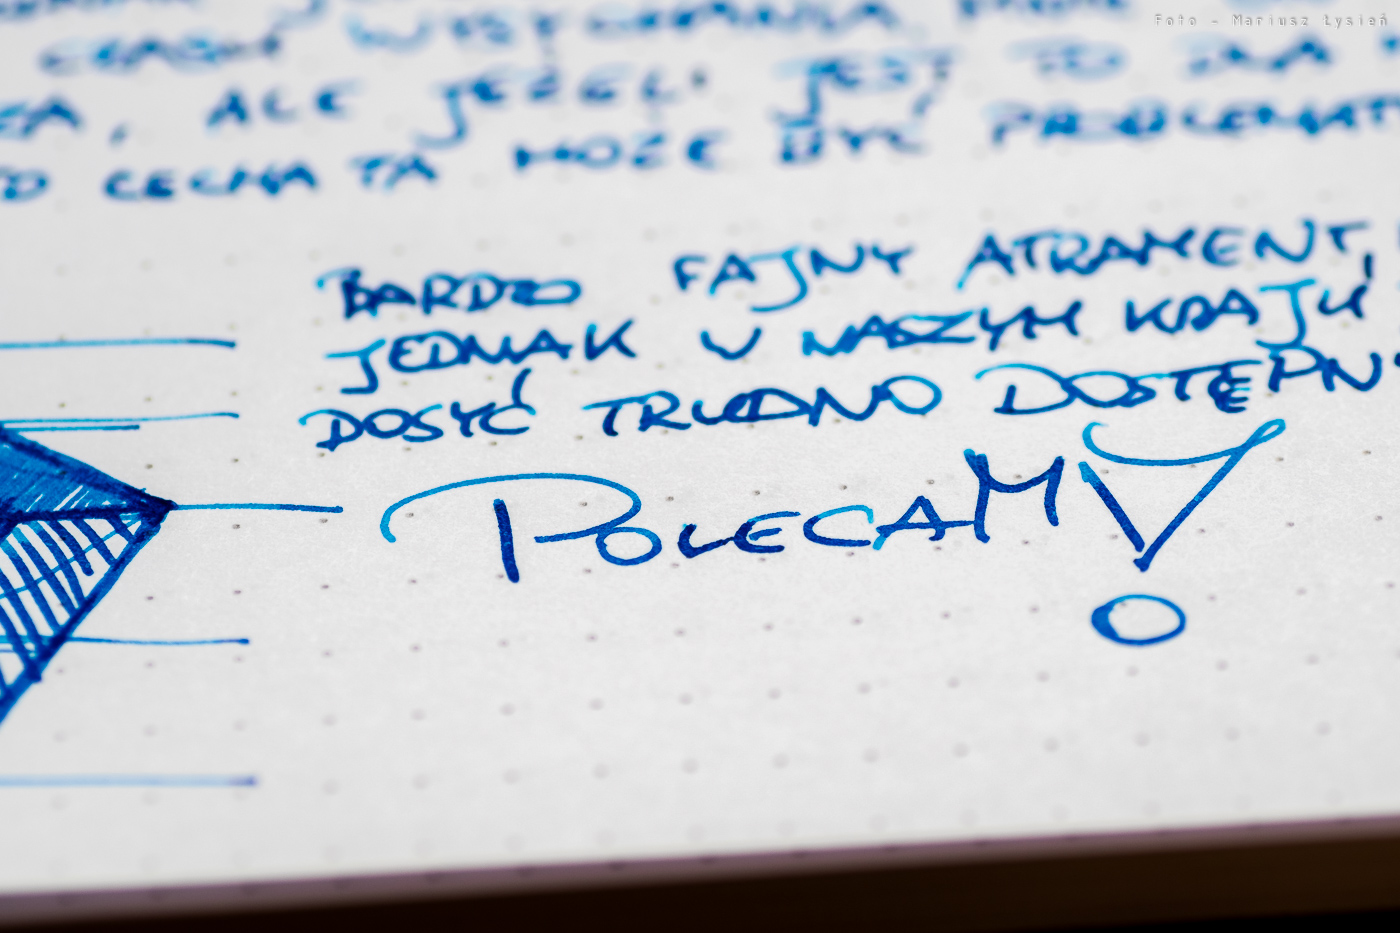 Foto - Mariusz Łysień
CZASU WYSYCHANIA
, ALE JEŻELI JEST TO DLA
TO CECHA TA MOŻE BYĆ PROBLEMAT
BARDZO FAJNY ATRAMENT,
JEDNAK W NASZYM KRAJU
DOSYĆ TRUDNO DOSTĘPNY
POLECAM!